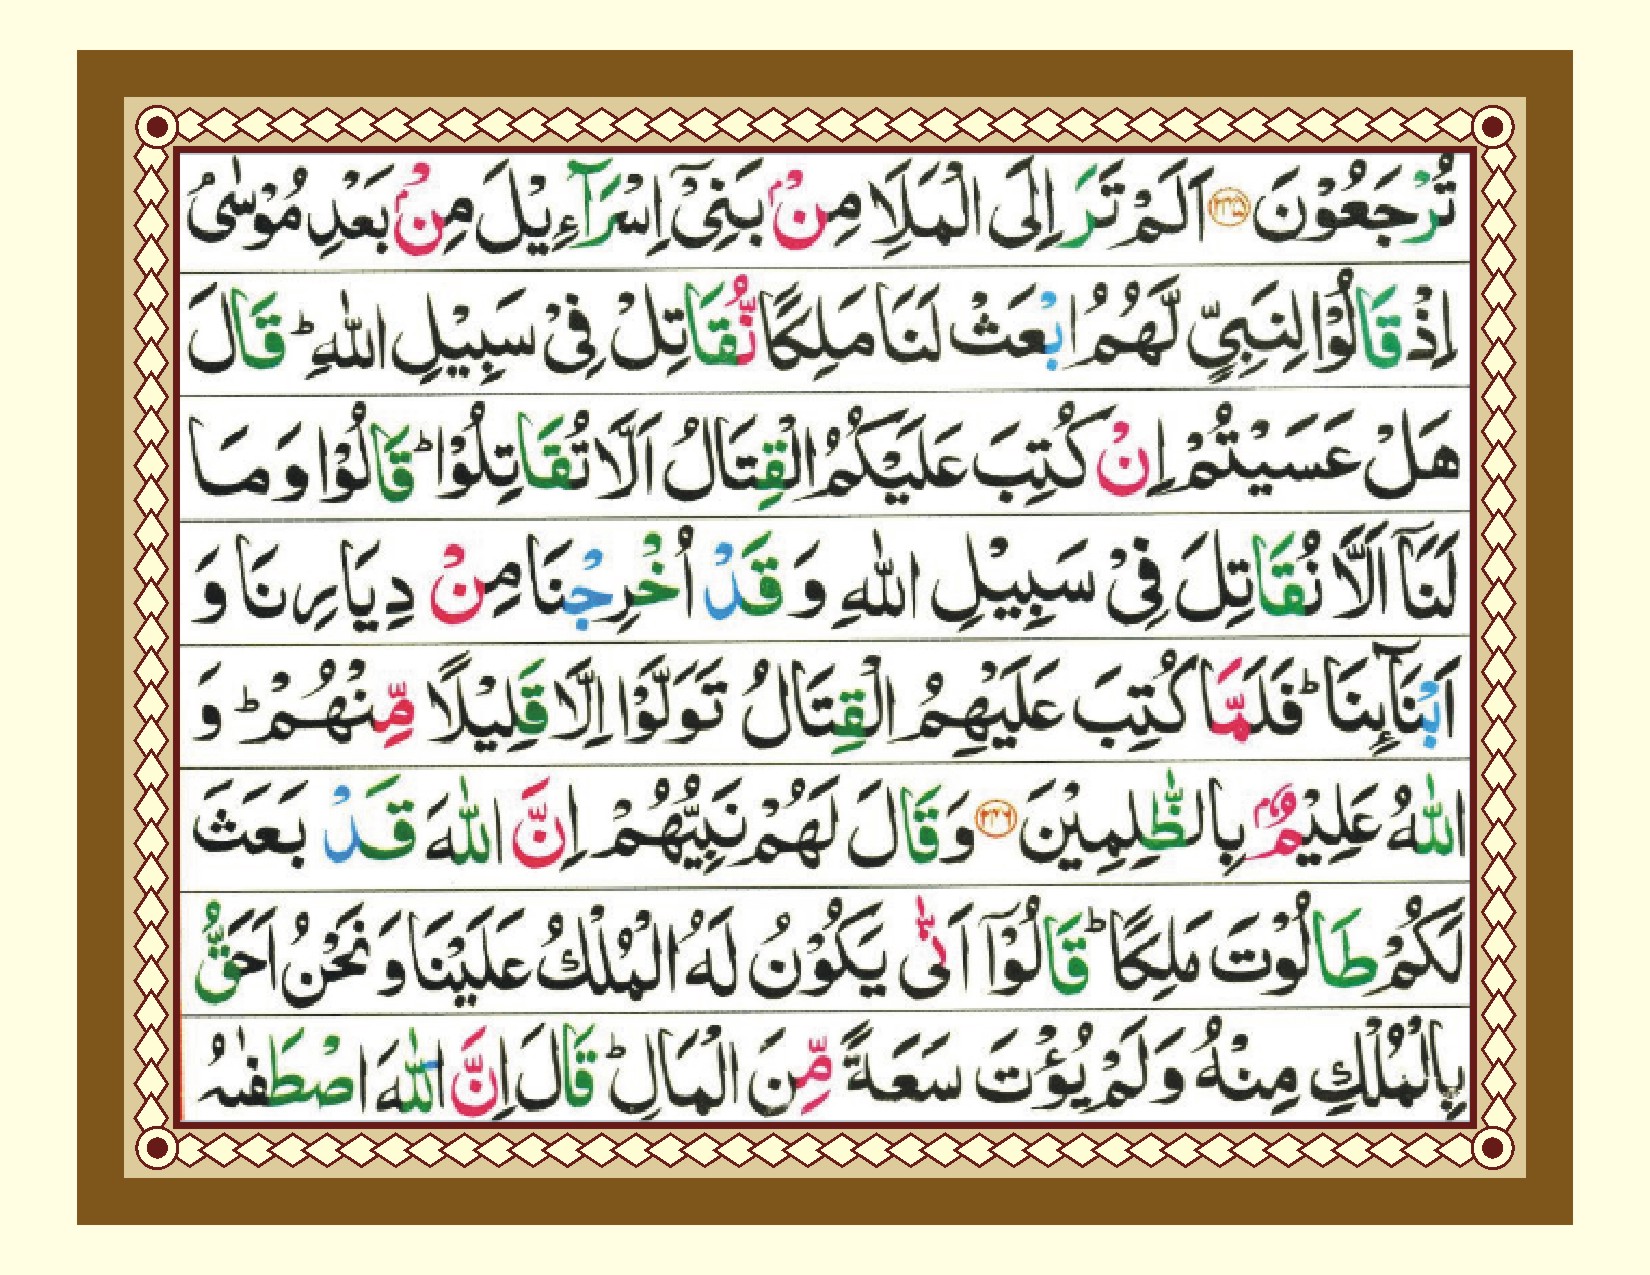 تُرْجَعُوْنَ ﴿۲۴۵﴾ اَلَمْ تَرَ اِلَى الْمَلَاِ مِنْۢ بَنِیْۤ اِسْرَآءِیْلَ مِنْۢ بَعْدِ مُوْسٰیۘ
اِذْ قَالُوْا لِنَبِیٍّ لَّهُمُ ابْعَثْ لَنَا مَلِكًا نُّقَاتِلْ فِیْ سَبِیْلِ اللّٰهِ ؕ قَالَ
هَلْ عَسَیْتُمْ اِنْ كُتِبَ عَلَیْكُمُ الْقِتَالُ اَلَّا تُقَاتِلُوْا ؕ قَالُوْا وَ مَا
لَنَاۤ اَلَّا نُقَاتِلَ فِیْ سَبِیْلِ اللّٰهِ وَ قَدْ اُخْرِجْنَا مِنْ دِیَارِنَا وَ
اَبْنَآىِٕنَا ؕ فَلَمَّا كُتِبَ عَلَیْهِمُ الْقِتَالُ تَوَلَّوْا اِلَّا قَلِیْلًا مِّنْهُمْ ؕ وَ
اللّٰهُ عَلِیْمٌۢ بِالظّٰلِمِیْنَ ﴿۲۴۶﴾ وَ قَالَ لَهُمْ نَبِیُّهُمْ اِنَّ اللّٰهَ قَدْ بَعَثَ
لَكُمْ طَالُوْتَ مَلِكًا ؕ قَالُوْۤا اَنّٰی یَكُوْنُ لَهُ الْمُلْكُ عَلَیْنَا وَ نَحْنُ اَحَقُّ
بِالْمُلْكِ مِنْهُ وَ لَمْ یُؤْتَ سَعَةً مِّنَ الْمَالِ ؕ قَالَ اِنَّ اللّٰهَ اصْطَفٰىهُ